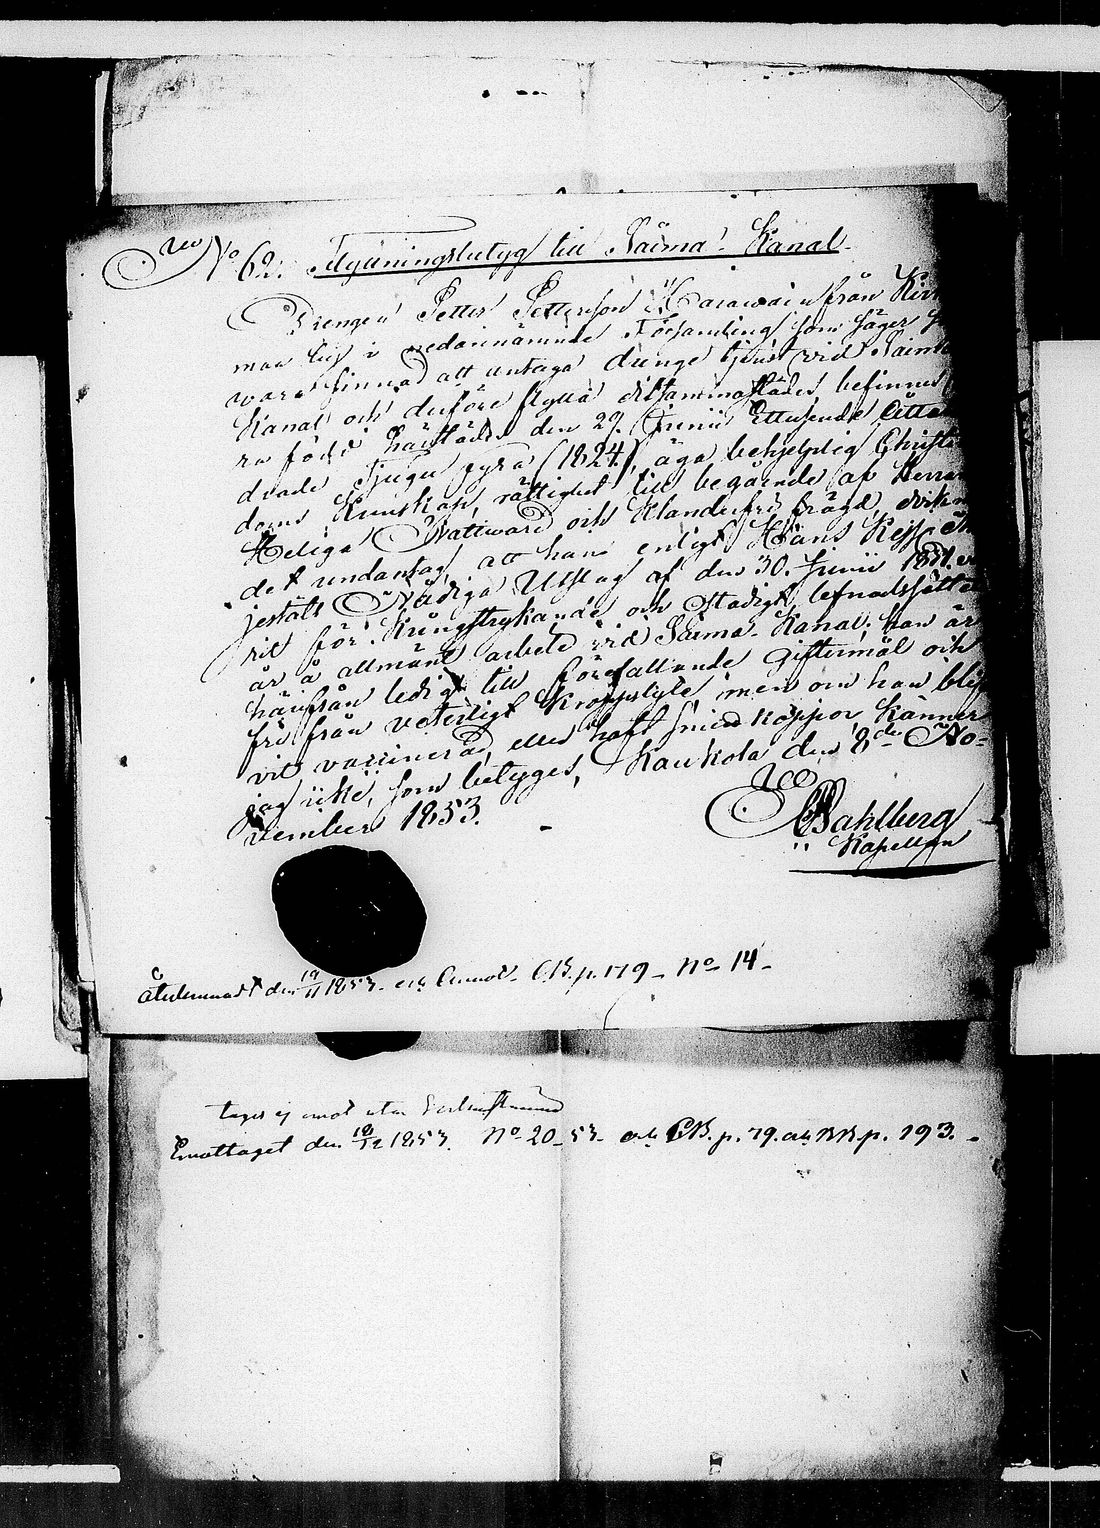 No 62. Flyttningsbetyg till Saima Kanal.
Drengen Petter Pettersson från
man by i nedannämnde Församling som säger
wara sinnad att antaga drenge tjenst vid Saima
Kanal och derföre flytta ditsammastädes, befinnes
ra född härstädes den 29. Junii Ettusende Åtta
drade Tjugu fyra (1824.), äga behjelplig Christen
doms Kunskap, rättighet till begående af Herrans
Heliga Nattward och Klanderfri frägd,
det undantag, att han enligt Hans Kejs.
jestäts Nådiga Utslag af den 30. Junii
rit för Kringstrykande och Stadigt lefnadssätt
är å allmänt arbete vid Saima Kanal; han är
härifrån ledig till förefallande giftermål och
fri från veterligt Kroppslyte, men om han blif
vit vaccinerad, eller haft smickoppor, känner
jag icke, som betyges, Kaukola den 8de No-
vember 1853.
Dahlberg
Kapellan
Återlemnadt den 19/11 1853. och Annot. C.B. p. 179 - No 14 -
tages ej emot utan
Emottaget den 18/12 1853. No 20 - 53. och C.B. p. 79. och p. 193. -